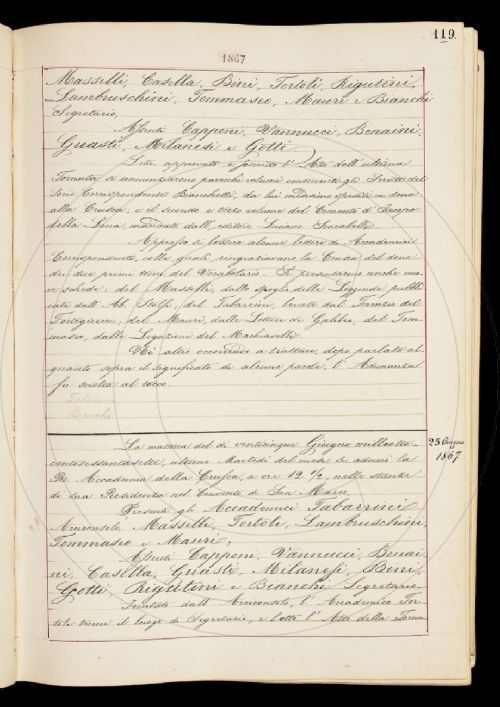 119
1867
Masselli, Casella, Bini, Tortoli, Rigutini,
Lambruschini, Tommaseo, Mauri e Bianchi
Segretario,
Assenti Capponi, Vannucci, Bonaini,
Guasti, Milanesi e Gotti.
Letto, approvato e firmato l'Atto dell'ultima
Tornata si annunziarono parecchi volumi contenenti gli Scritti del
Socio Corrispondente Bianchetti, da lui medesimo spediti in dono
alla Crusca, e il secondo e terzo volume del Comento di Jacopo
della Lana, mandato dall'editore Luciano Scarabelli.
Appresso si lessero alcune lettere di Accademici
Corrispondenti, colle quali ringraziavano la Crusca del dono
dei due primi tomi del Vocabolario. Si presentarono anche nuo-
ve schede del Masselli, dallo spoglio delle Leggende pubbli-
cate dall'Ab. Stolfi, del Tabarrini, levate dal Terenzio del
Forteguerri, del Mauri, dalle Lettere di Galileo, del Tom-
maseo, dalle Legazioni del Machiavelli.
Nè altro occorrendo a trattare, dopo parlato al-
quanto sopra il significato di alcune parole, l'Adunanza
fu sciolta al tocco.
Tabarrini
Bianchi
25 Giugno
1867
La mattina del dì venticinque Giugno milleotto-
centosessantasette, ultimo Martedì del mese si adunò la
R. Accademia della Crusca, a ore 12 1/2, nelle stanze
di sua Residenza nel Convento di San Marco.
Presenti gli Accademici Tabarrini
Arciconsolo, Masselli, Tortoli, Lambruschini,
Tommaseo e Mauri,
Assenti Capponi, Vannucci, Bonai-
ni, Casella, Guasti, Milanesi, Bini,
Gotti, Rigutini e Bianchi Segretario.
Invitato dall'Arciconsolo, l'Accademico Tor-
toli tenne il luogo di Segretario, e letto l'Atto della Torna-